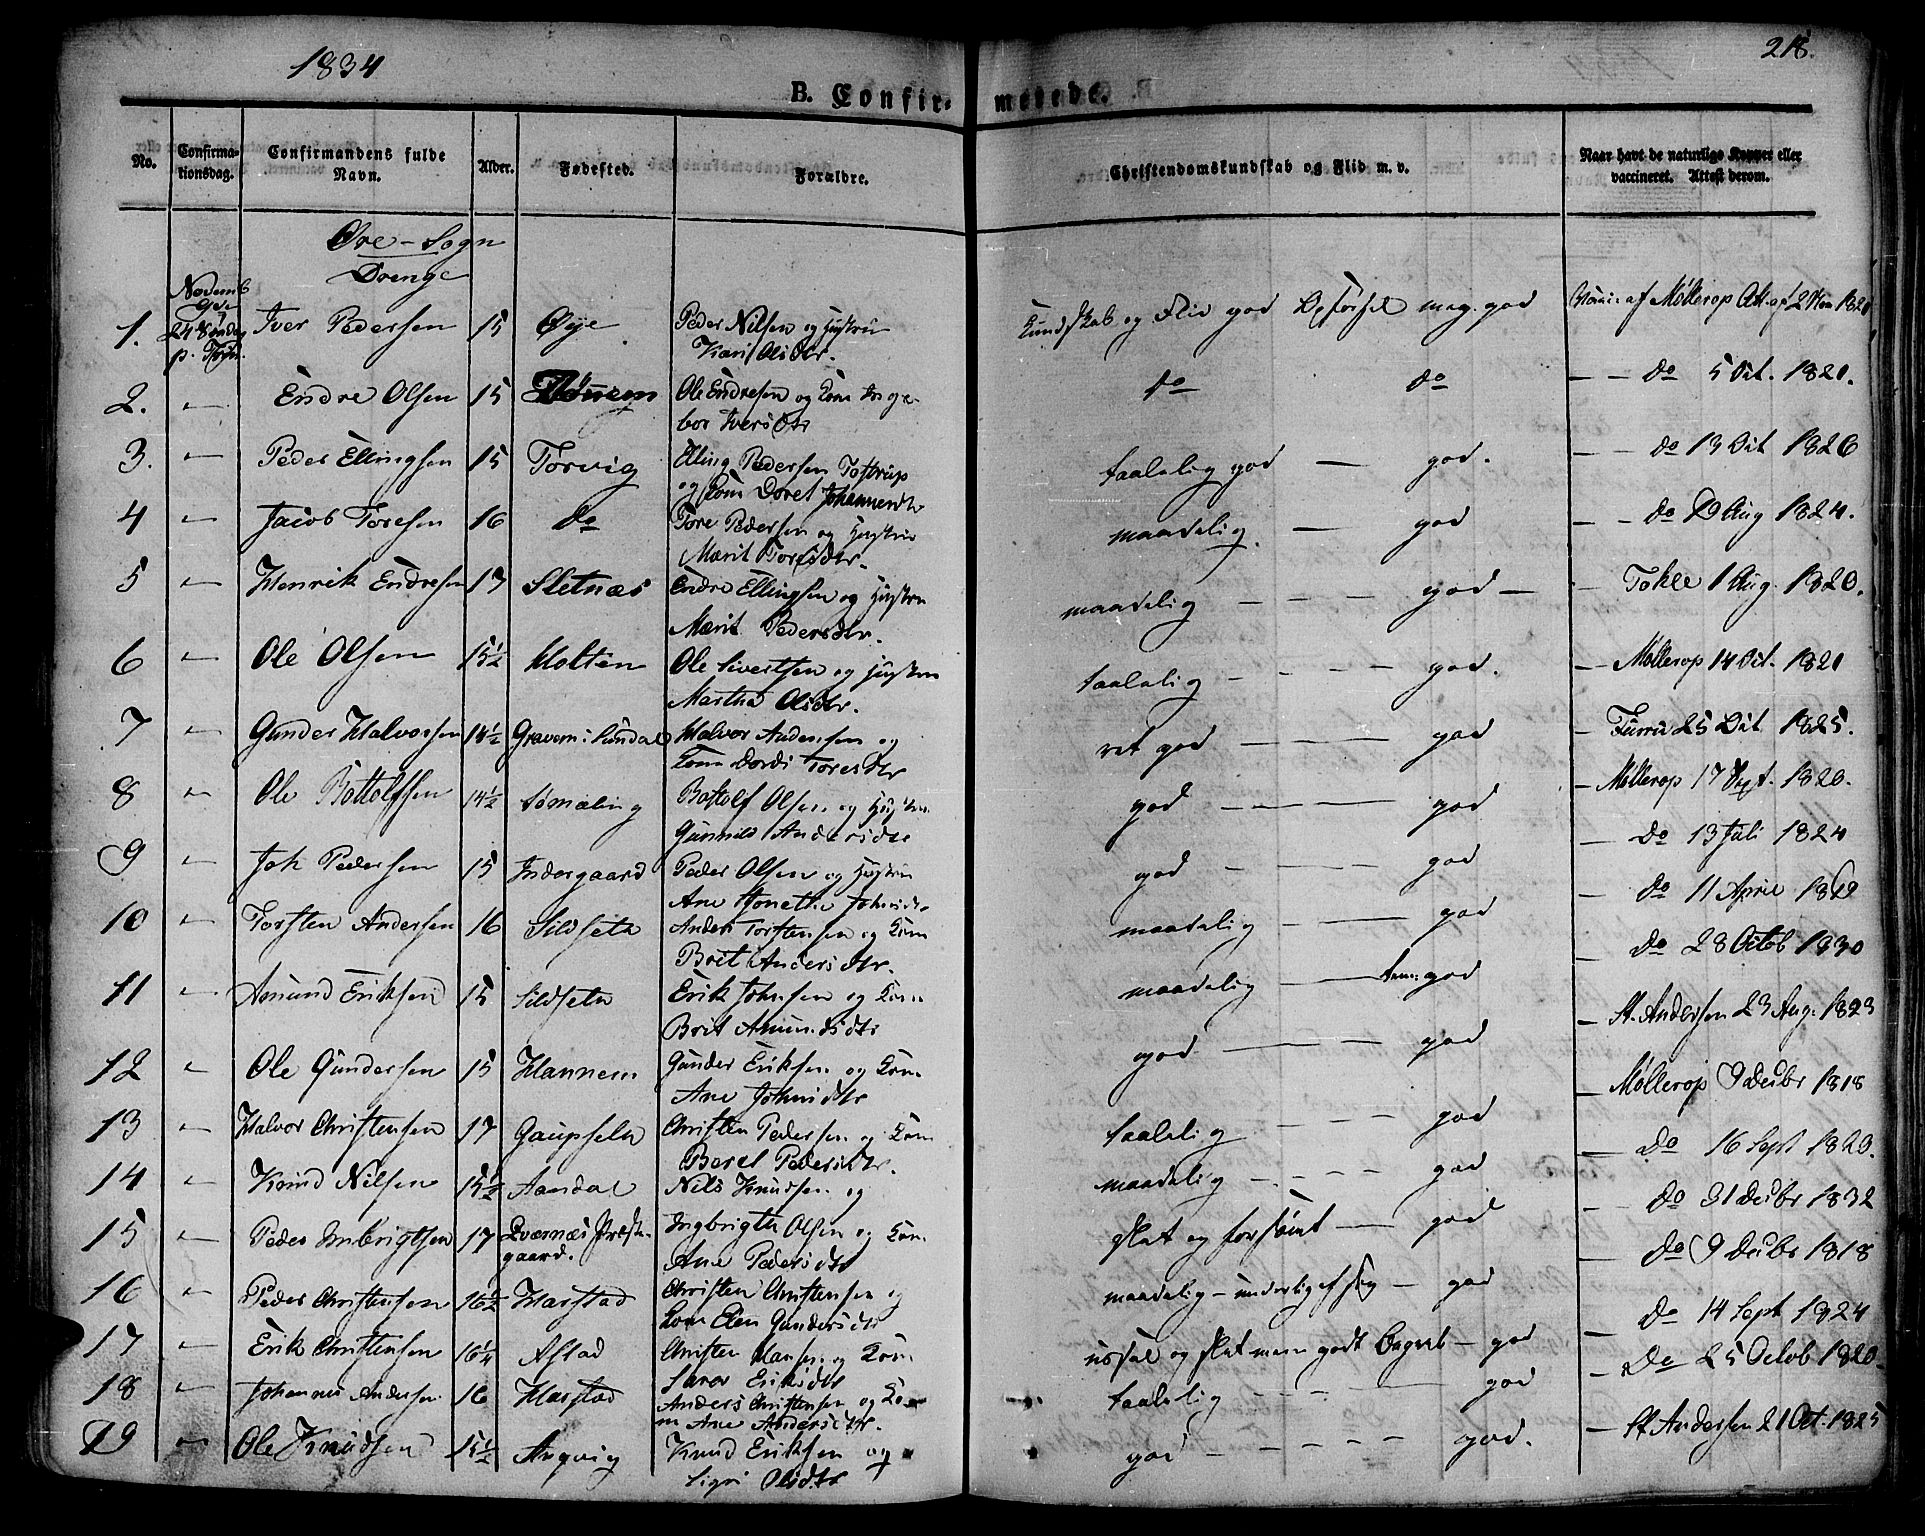 1834
218.
B. Confir-
merede.
No.
Confirma-
tionsdag.
Confirmandens fulde
Navn.
Alder.
Fødested.
Forældre.
Christendomskundskab og Flid m. v.
Naar havt de naturlige Kopper eller
vaccineret. Attest derom.
Øre - Sogn
Drenge
Novemb
24 Søndag
p. Trin.
1. Iver Pedersen 15 Øye Peder Nilsen og Hustru
Kari Olsdtr.
Kundskab og Flid god Opførsel meg. god
af Møllerop Att. af 2 1821
2. " Endre Olsen 15 Ole Endresen og Kone Inge-
bor Iversdtr
do do — — do 5 Oct. 1821.
3. " Peder Ellingsen 15 Torvig Elling Pedersen Tostrup
og Kone Doret Johannesdtr
taalelig god — god. — do 13 Oct 1826
4 " Jacob Toresen 16 do Tore Pedersen og Hustru
Marit Toresdtr.
maadelig — god — — do 19 Aug 1824.
5 " Henrik Endresen 17 Sletnæs Endre Ellingsen og Hustru
Marit Pedersdtr.
maadelig — — — god — — Tokle 1 Aug. 1820.
6 " Ole Olsen 15½ Holten Ole Sivertsen og Hustru
Martha Olsdtr.
taalelig — — — — god. — Møllerop 14 Oct. 1821
7 " Gunder Halvorsen 18½ Gravem i Sundal Halvor Andersen og
Kone Dordi Toresdtr
ret god — — — god — 25 Oct 1825.
8 " Ole Bottolfsen 14½ Bottolf Olsen og Hustru
Gunnild Andersdtr
god — — — — god — Møllerop 17 Sept. 1820.
9 " Joh Pedersen 15 Indergaard Peder Olsen og Hustru
Ane Johnsdtr
god — — — — god — do 13 Juli 1824
10 " Torsten Andersen 16 Sildseth Anders Torstensen og Kone
Brit Andersdtr.
maadelig — — — god — do 11 April 1829
11 " Amund Eriksen 15 Sildseth Erik Johnsen og Kone
Brit Amundsdtr
maadelig — — god — do 28 Octob 1830
12 " Ole Gundersen 15 Hannem Gunder Eriksen og Kone
Ane Johnsdtr
god — — — god — St. Andersen 23 Aug. 1823
13 " Halvor Christensen 17 Gaupseth Christen Pedersen og Kone
Beret Pedersdtr.
taalelig — — — god — Møllerop 9 Decbr 1818
14 " Knud Nilsen 15½ Aandal Nils Knudsen og
maadelig — — — god — do 16 Sept 1820.
15 " Peder Inbrigtsen 17 Qværnæs Præste-
gaard.
Ingbrigth Olsen og Kone
Ane Pedersdtr
slet og forsömt — god — do 31 Decbr 1832
16 " Peder Christensen 16½ Harstad Christen Christensen og
Kone Elen Gundersdtr
maadelig — — god — do 9 Decbr 1818
17 " Erik Christensen 16¼ Astad Christen Hansen og Kone
Eriksdtr
ussel og slet men godt Begreb — god — do 14 Sept 1824
18 " Johannes Andersen 16 Harstad Anders Christensen og Ko-
ne Ane Andersdtr.
taalelig — — — — god — do 25 Octob 1820
19 " Ole Knudsen 15½ Angvig Knud Eriksen og
Sigri Olsdtr
god — — — — god. — St Andersen 21 Oct. 1825